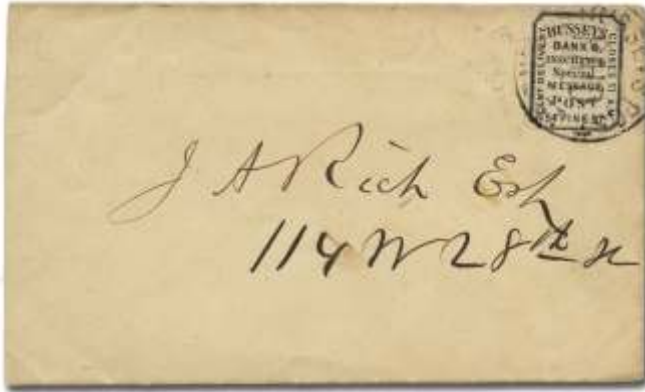 HUSSEY'S
BANK &
INSURANCE
Special
MESSAGE
POST
54 PINE ST.
J A Rich Esq
114 W 28th st